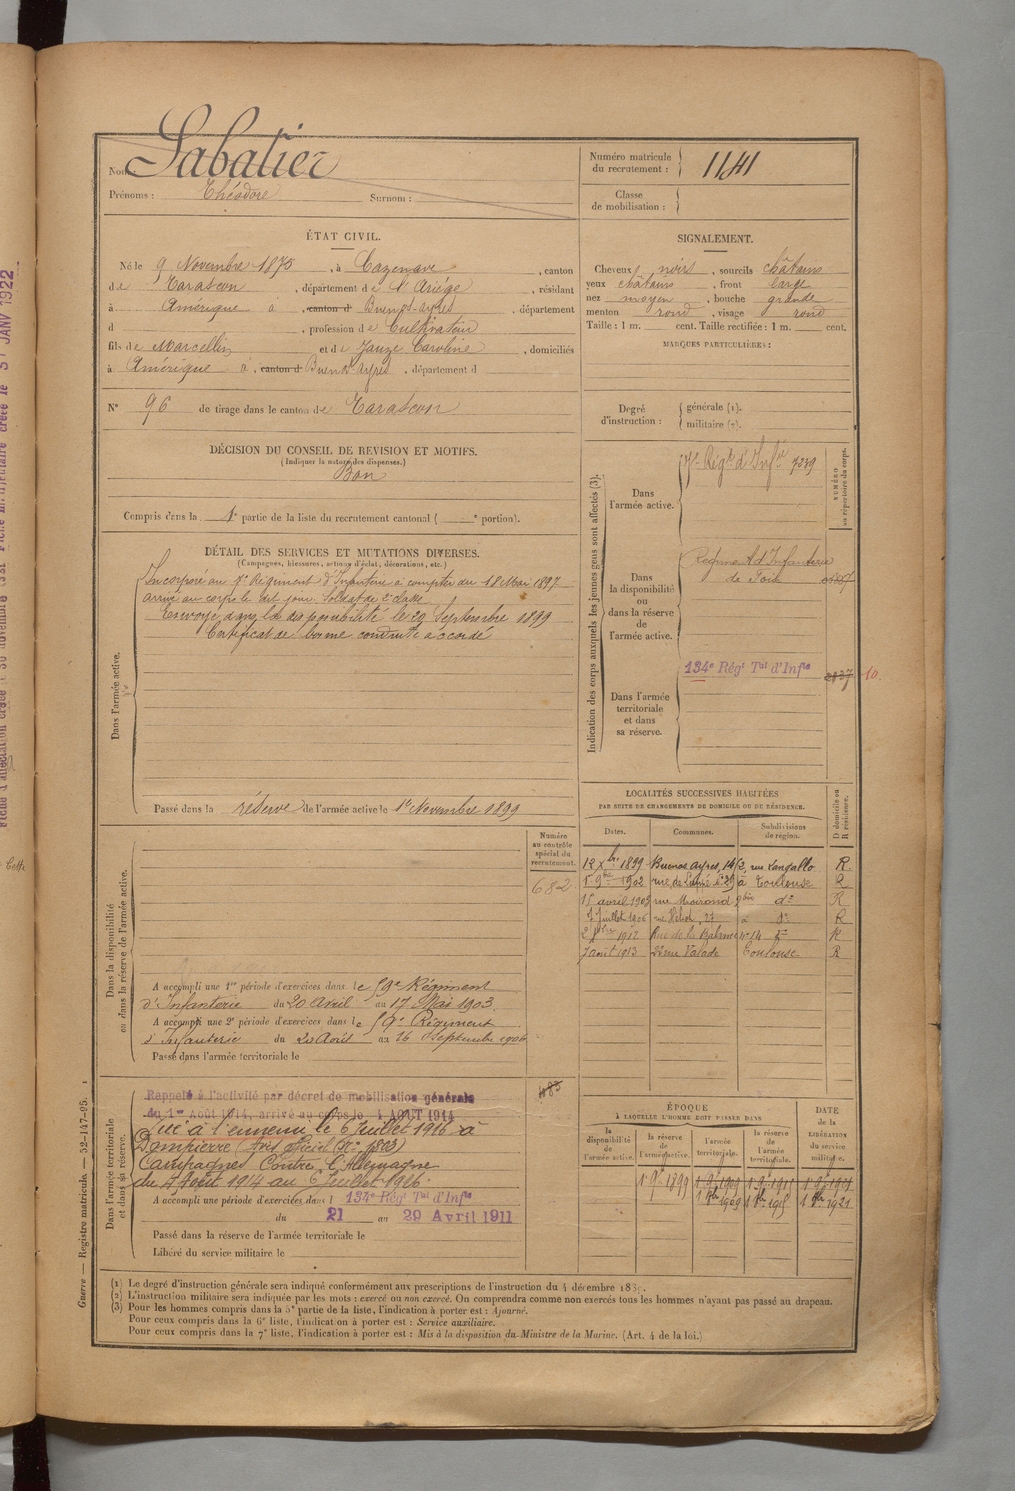 Nom : Sabatier
Prénoms : Théodore Surnom :
Numéro matricule du recrutement : 1141
Classe de mobilisation :
ÉTAT CIVIL.
Né le 9 Novembre 1875, à Cazenave, canton
de Tarascon, département de l'Ariège, résidant
à Amérique à, canton d Buenos-ayres, département
d , profession de Cultivateur
fils de Marcellin et de Jauze Caroline, domiciliés
à Amérique à, canton d Buenos Ayres, département d
N° 96 de tirage dans le canton de Tarascon
SIGNALEMENT.
Cheveux noirs, sourcils châtains
yeux châtains, front large
nez moyen, bouche grande
menton rond, visage rond
Taille : 1 m. cent. Taille rectifiée : 1 m. cent.
MARQUES PARTICULIÈRES :
DÉCISION DU CONSEIL DE REVISION ET MOTIFS.
(Indiquer la nature des dispenses.)
Bon
Compris dans la 1e partie de la liste du recrutement cantonal ( e portion).
Degré d'instruction : générale (1).
militaire (2).
DÉTAIL DES SERVICES ET MUTATIONS DIVERSES.
(Campagnes, blessures, actions d'éclat, décorations, etc.)
Dans l'armée active.
Incorporé au Régiment d'Infanterie à compter du 18 Mai 1897
arrivé au corps le dit jour. Soldat de 2e classe
Envoyé dans la disponibilité le 29 Septembre 1899
Certificat de bonne conduite accordé
Passé dans la réserve de l'armée active le 1er Novembre 1899
Indication des corps auxquels les jeunes gens sont affectés (3).
NUMÉRO au répertoire du corps.
Dans l'armée active.
Régt d'Infie 7239
Dans la disponibilité ou dans la réserve de l'armée active.
Régiment d'Infanterie
de Foix
Dans l'armée territoriale et dans sa réserve.
134e Régt Tal d'Infie
10.
LOCALITÉS SUCCESSIVES HABITÉES
PAR SUITE DE CHANGEMENTS DE DOMICILE OU DE RÉSIDENCE.
D domicile ou R résidence.
Dates. Communes. Subdivisions de région.
12 Xbre 1899 Buenos ayres, rue Langallo R.
9bre 1902 rue de à Toulouse R
15 avril 1903 rue 9bis d° R
Juillet 1906 rue 27 à d° R
1912 Rue de la n° 14 d° R
7 août 1913 rue Valade Toulouse R
Numéro au contrôle spécial du recrutement.
682
Dans la disponibilité ou dans la réserve de l'armée active.
A accompli une 1re période d'exercices dans le 59e Régiment
d'Infanterie du 20 Avril au 17 Mai 1903.
A accompli une 2e période d'exercices dans le 59e Régiment
d'Infanterie du 20 Août au 16 Septembre 1906
Passé dans l'armée territoriale le
Dans l'armée territoriale et dans sa réserve.
Rappelé à l'activité par décret de mobilisation générale
du 1er Août 1914, arrivé au corps le 4 AOUT 1914
Tué à l'ennemi le 6 Juillet 1916 à
Dompierre (Avis officiel
Campagnes Contre l'Allemagne
du 4 Août 1914 au 6 Juillet 1916.
A accompli une période d'exercices dans l 134e Régt Tal d'Infie
du 21 au 29 Avril 1911
Passé dans la réserve de l'armée territoriale le
Libéré du service militaire le
ÉPOQUE
À LAQUELLE L'HOMME DOIT PASSER DANS
DATE de la LIBÉRATION du service militaire.
la disponibilité de l'armée active. la réserve de l'armée active. l'armée territoriale. la réserve de l'armée territoriale.
1 9bre 1899 1 9bre 1909
1 8bre 1909 1 8bre 1915 1 8bre 1921
(1) Le degré d'instruction générale sera indiqué conformément aux prescriptions de l'instruction du 4 décembre
(2) L'instruction militaire sera indiquée par les mots : exercé ou non exercé. On comprendra comme non exercés tous les hommes n'ayant pas passé au drapeau.
(3) Pour les hommes compris dans la 5e partie de la liste, l'indication à porter est : Ajourné.
Pour ceux compris dans la 6e liste, l'indication à porter est : Service auxiliaire.
Pour ceux compris dans la 7e liste, l'indication à porter est : Mis à la disposition du Ministre de la Marine. (Art. 4 de la loi.)
Guerre — Registre matricule. — 52-147-95.